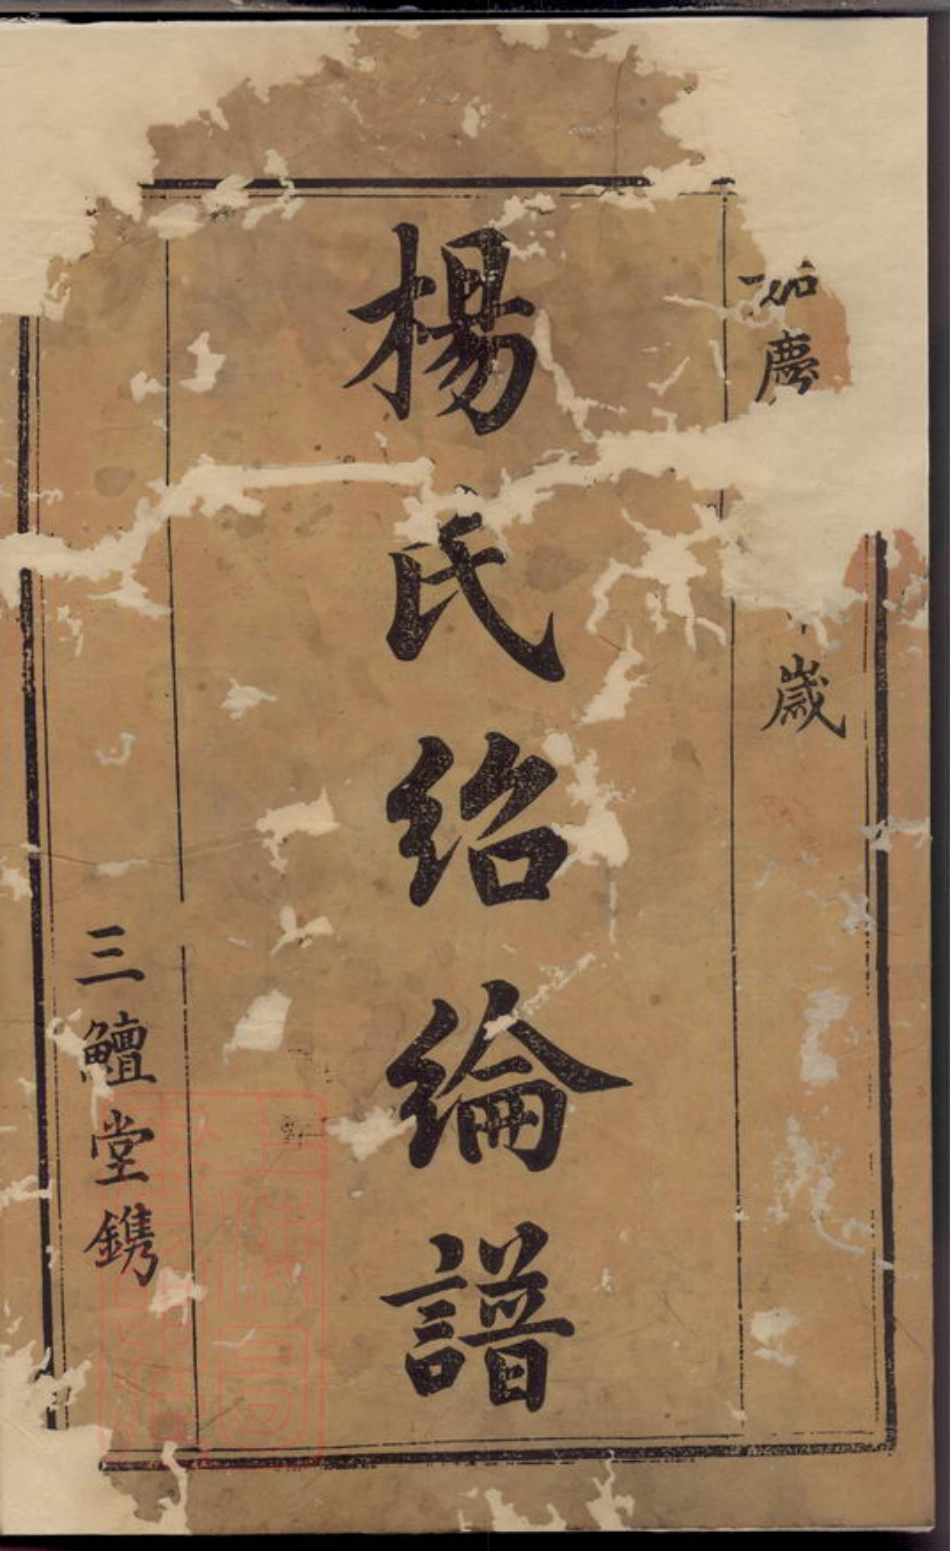 嘉慶
歲
楊氏紹綸譜
三鱣堂鐫